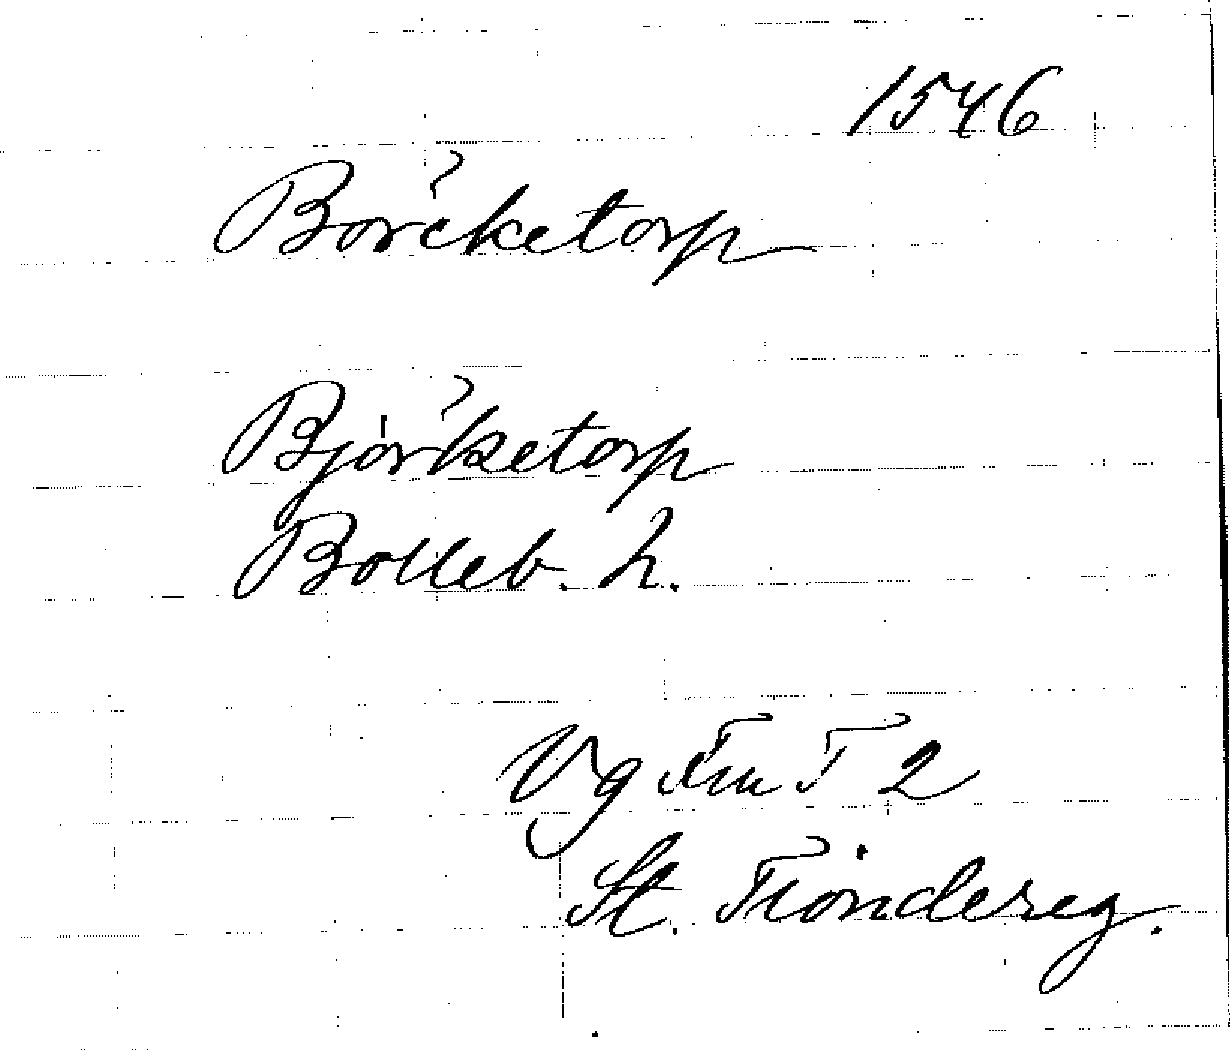 1546
Borcketorp
Björketorp
Bolleb. h.
Vg Tiu T 2
St. Tiondereg.